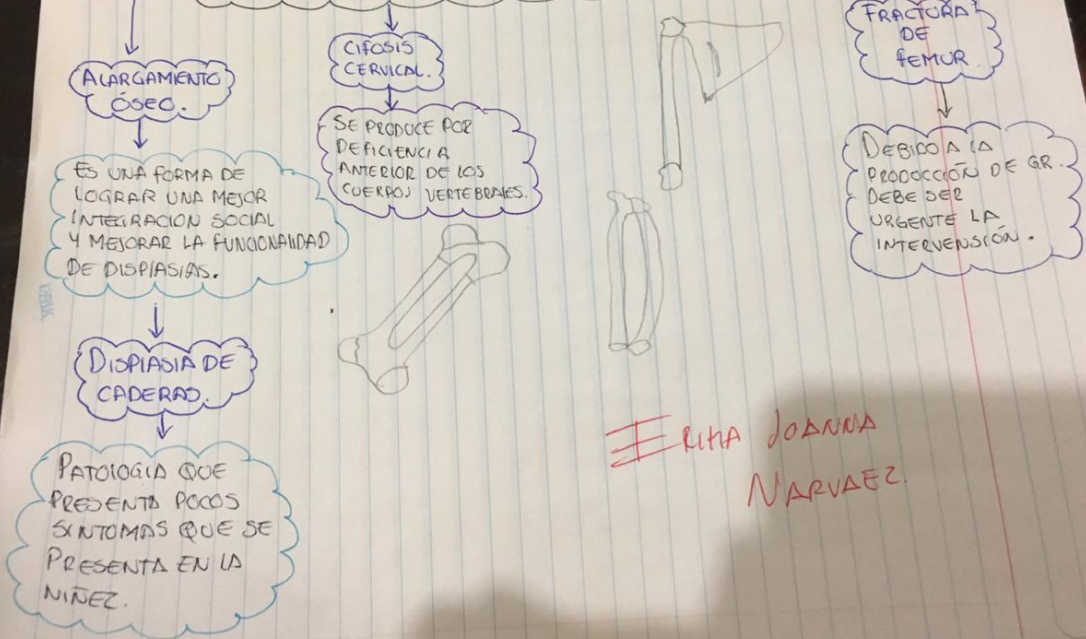 ALARGAMIENTO
ÓSEO.
ES UNA FORMA DE
LOGRAR UNA MEJOR
INTEGRACION SOCIAL
Y MEJORAR LA FUNCIONALIDAD
DE DISPLASIAS.
DISPLASIA DE
CADERAS.
PATOLOGIA QUE
PRESENTA POCOS
SINTOMAS QUE SE
PRESENTA EN LA
NIÑEZ.
CIFOSIS
CERVICAL.
SE PRODUCE POR
DEFICIENCIA
ANTERIOR DE LOS
CUERPOS VERTEBRALES.
FRACTURA
DE
FEMUR.
DEBIDO A LA
PRODUCCIÓN DE GR.
DEBE SER
URGENTE LA
INTERVENSIÓN.
ERIKA JOANNA
NARVAEZ.